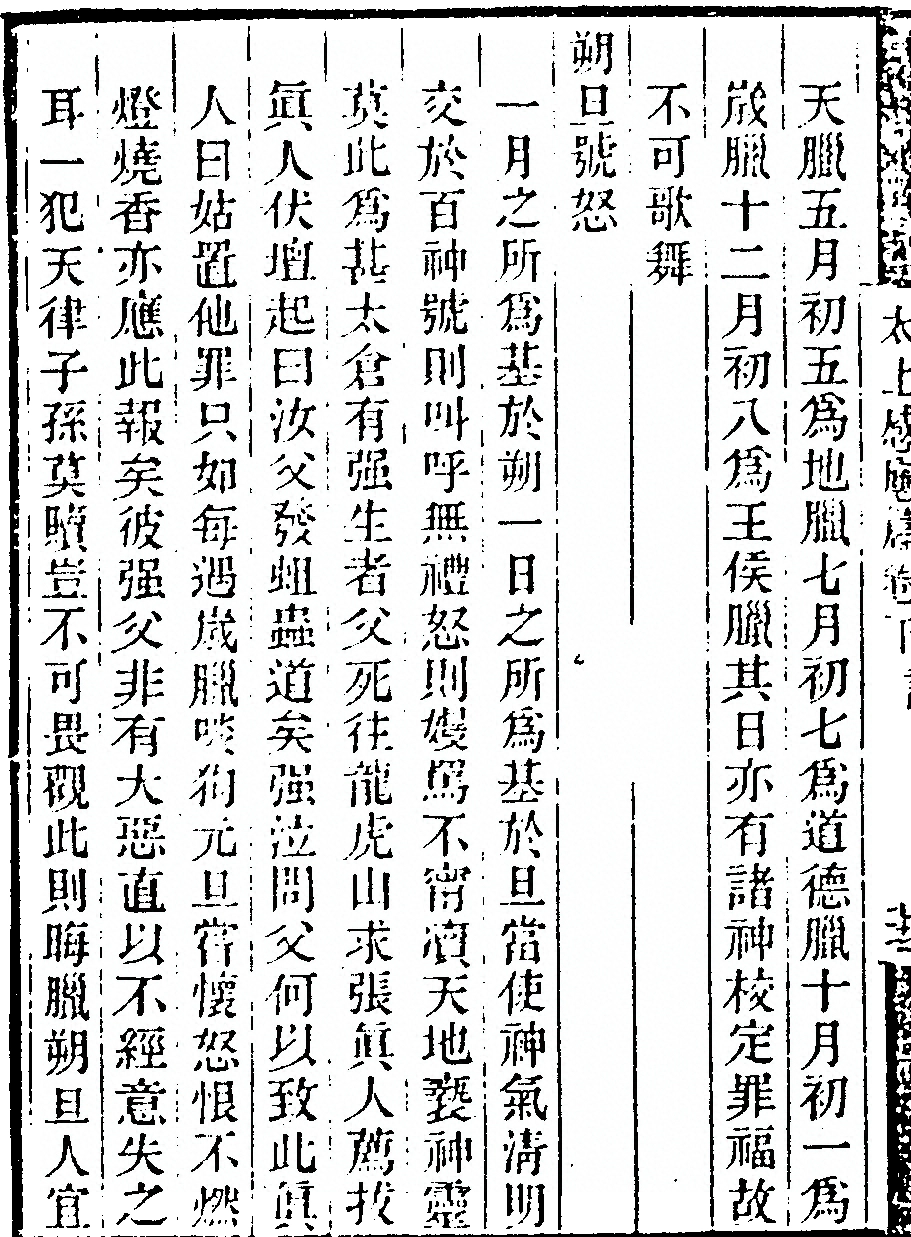 太上感應篇卷下
天臘五月初五爲地臘七月初七爲道德臘十月初一爲
歲臘十二月初八爲王侯臘其日亦有諸神校定罪福故
不可歌舞
朔旦號怒
一月之所爲基於朔一日之所爲基於旦當使神氣清明
交於百神號則叫呼無禮怒則嫚罵不甯凟天地褻神靈
莫此爲甚太倉有强生者父死往龍虎山求張眞人薦拔
眞人伏壇起曰汝父發蛆蟲道矣强泣問父何以致此眞
人曰姑置他罪只如每遇歲臘啖狗元旦甞懷怒恨不燃
燈燒香亦應此報矣彼强父非有大惡直以不經意失之
耳一犯天律子孫莫贖豈不可畏觀此則晦臘朔旦人宜